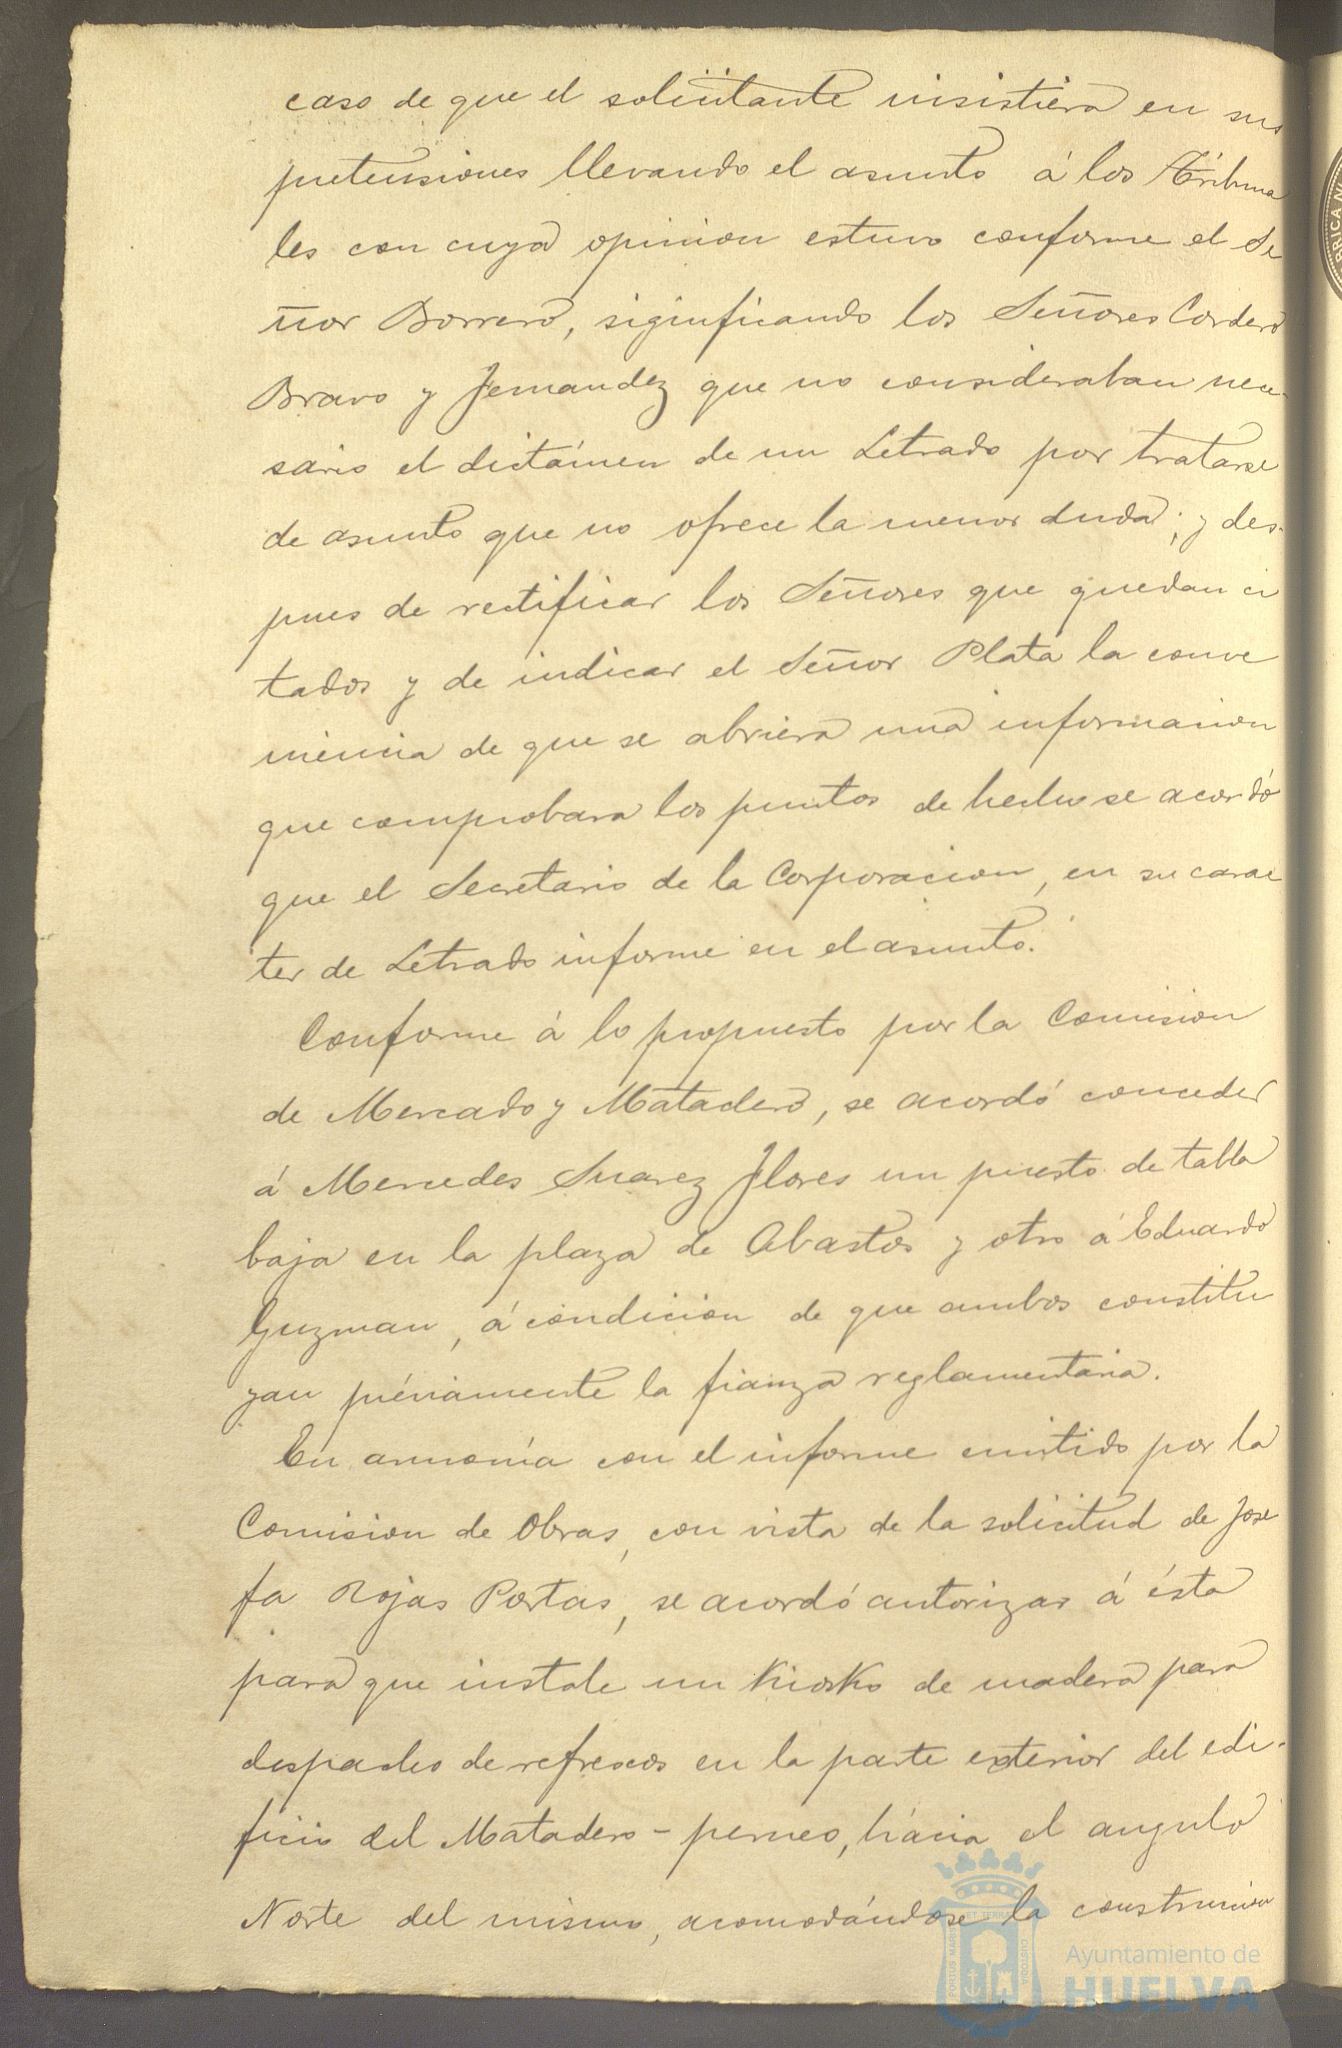 caso de que el solicitante insistiera en sus
pretensiones llevando el asunto á los Tribuna
les con cuya opinion estuvo conforme el Se
ñor Borrero, significando los Señores Cordero
Bravo y Fernandez que no consideraban nece-
sario el dictámen de un Letrado por tratarse
de asunto que no ofrece la menor duda; y des-
pues de rectificar los Señores que quedan ci
tados y de indicar el Señor Plata la conve
niencia de que se abriera una informacion
que comprobara los puntos de hecho se acordó
que el Secretario de la Corporacion, en su carac
ter de Letrado informe en el asunto.
Conforme á lo propuesto por la Comision
de Mercado y Matadero, se acordó conceder
á Mercedes Suarez Flores un puesto de tabla
baja en la plaza de Abastos y otro á Eduardo
Guzman, á condicion de que ambos constitu
yan préviamente la fianza reglamentaria.
En armonía con el informe emitido por la
Comision de Obras, con vista de la solicitud de Jose
fa Rojas Portas, se acordó autorizar á ésta
para que instale un Kiosko de madera para
despacho de refrescos en la parte exterior del edi-
ficio del Matadero-perneo, hácia el angulo
Norte del mismo, acomodándose la construccion
Ayuntamiento de
HUELVA